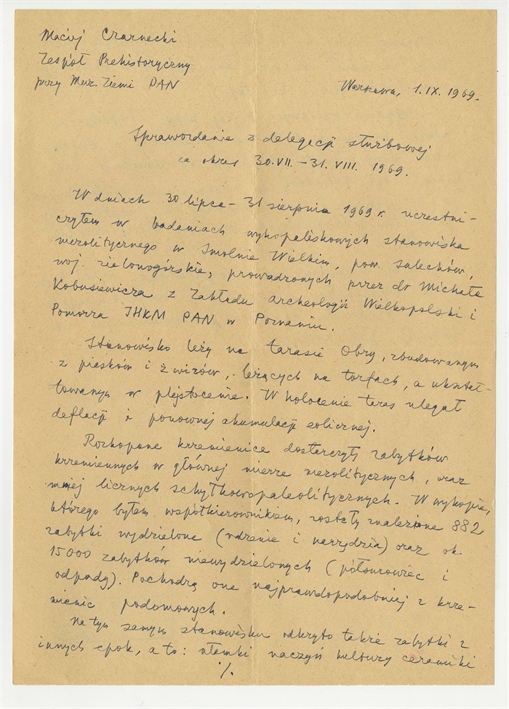 Maciej Czarnecki
Zespół Prehistoryczny
przy Muz. Ziemi PAN
Warszawa, 1.IX.1969.
Sprawozdanie z delegacji służbowej
za okres 30.VII.–31.VIII.1969.
W dniach 30 lipca – 31 sierpnia 1969 r. uczestni-
czyłem w badaniach wykopaliskowych stanowiska
mezolitycznego w Smolnie Wielkim, pow. Sulechów,
woj. zielonogórskie, prowadzonych przez dr Michała
Kobusiewicza z Zakładu archeologii Wielkopolski i
Pomorza IHKM PAN w Poznaniu.
Stanowisko leży na tarasie Obry, zbudowanym
z piasków i żwirów, leżących na torfach, a ukształ-
towanym w plejstocenie. W holocenie taras ulegał
deflacji i ponownej akumulacji eolicznej.
Rozkopane krzemienice dostarczyły zabytków
krzemiennych w głównej mierze mezolitycznych, oraz
mniej licznych schyłkowopaleolitycznych. W wykopie,
którego byłem współkierownikiem, zostały znalezione 882
zabytki wydzielone (rdzenie i narzędzia) oraz ok.
15000 zabytków niewydzielonych (półsurowiec i
odpady). Pochodzą one najprawdopodobniej z krze-
mienic podomowych.
Na tym samym stanowisku odkryto także zabytki z
innych epok, a to: ułamki naczyń kultury ceramiki
./.